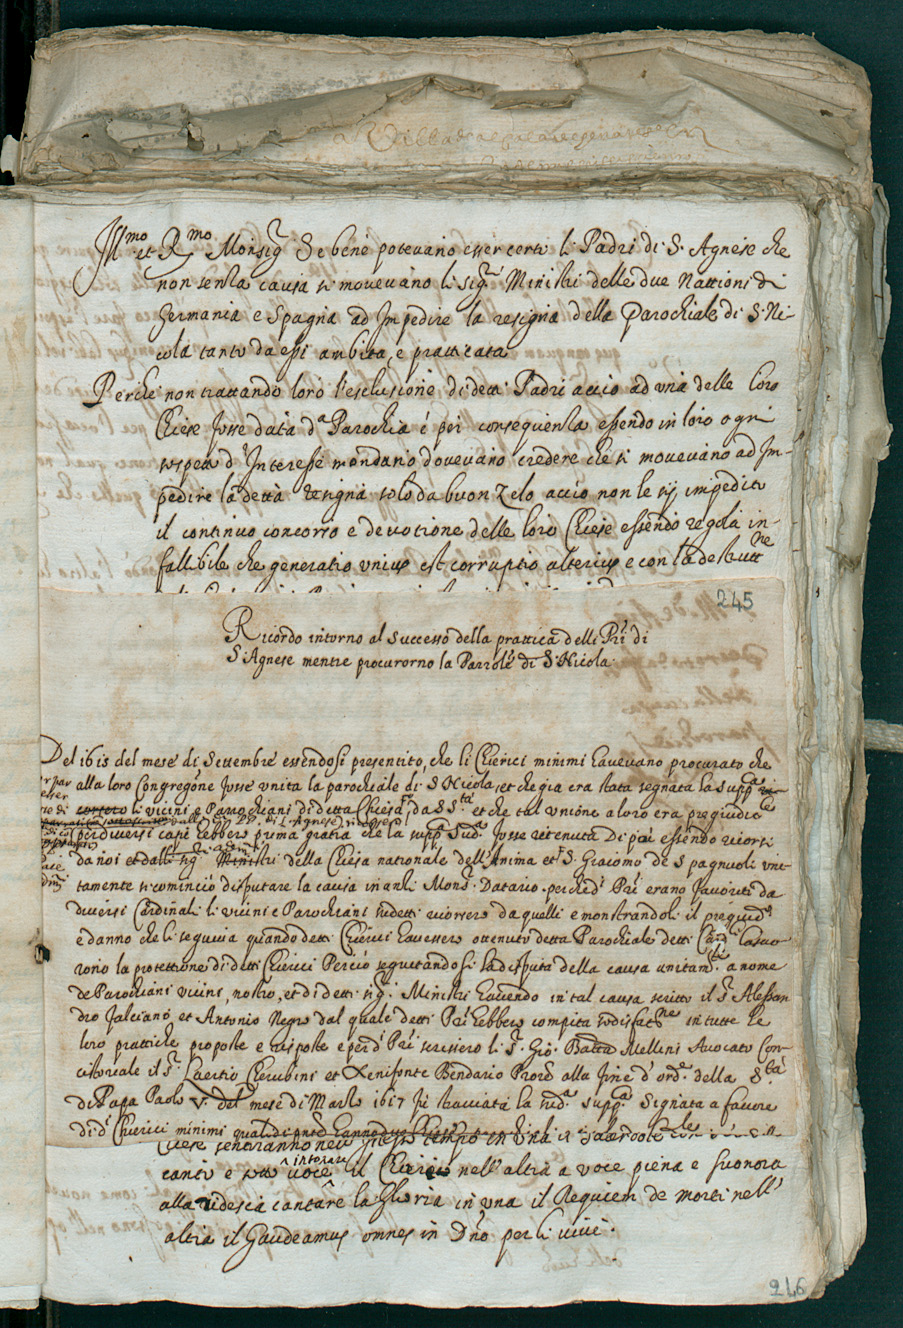 Ill.mo et R.mo Monsig.r Se bene potevano esser certi li Padri di S. Agnese che
non senza causa si movevano li sig.ri Ministri delle due Nattioni di
Germania e Spagna ad Impedire la resigna della Parochiale di S. Ni-
cola tanto da essi ambita, e pratticata
Perche non trattando loro l'esclusione di detti Padri accio ad una delle loro
Chiese fosse data d.a Parochia é per consequenza essendo in loro ogni
sospetto d'Interesse mondano dovevano credere che si movevano ad Im-
pedire la detta resigna solo da buon Zelo accio non le sij impedito
il continuo concorso e devotione delle loro Chiese essendo regola in-
fallibile che generatio unius est corruptio alterius e con la destrutt.ne
245
Ricordo intorno al Successo della prattica delli P'ri di
S. Agnese mentre procurorno la Parro'le di S. Nicola
Del 1615 del mese di Settembre essendosi presentito, che li Chierici minimi havevano procurato che
alla loro Congreg.ne fosse unita la parochiale di S. Nicola, et che gia era stata segnata la supp.ca
li vicini e Parochiani di detta Chiesa da S. S.tà et che tal unione a loro era pregiudic
per diversi capi hebbero prima gratia che la supp.ca fosse retenuta Di poi essendo ricorsi
da noi et dalli sig.ri Ministri della Chiesa nationale dell'Anima et S. Giacomo de Spagnuoli uni-
tamente si cominciò disputare la causa inanzi Mons.r Datario. perche d.i P'ri erano favoriti da
diversi Cardinali li vicini e Parochiani sudetti ricorsero da quelli e monstrandoli il pregiud.o
e danno che li seguiva quando detti Chierici havessero ottenuto detta Parochiale detti Card.li lascio-
rono la protettione di detti Chierici Perciò seguetandosi la disputa della causa unitam.te a nome
de Parochiani vicini, nostro, et di detti sig.ri Ministri havendo in tal causa scritto il S.r Alessan
dro Falciano et Antonio Negro dal quale detti P'ri hebbero compita sodisfat.ne in tutte le
loro prattiche proposte e risposte e per d.i P'ri scrissero li S.ri Gio. Batta Mellini Avocato Con-
cistoriale il S.r Laertio Cherubini et Xenifonte Bendario Proc.re alla fine d'ord.e della S.tà
di Papa Paolo V. del mese di Marzo 1617 fu stacciata la sud.a supp.ca Signata a favore
di d.i Chierici minimi
canto e sotto voce il Chierico nell'altra a voce piena e suonora
intonare
alla todesca cantare la Gloria in una il Requiem de morti nell'
altra il Gaudeamus omnes in D'no per li vivi.
246